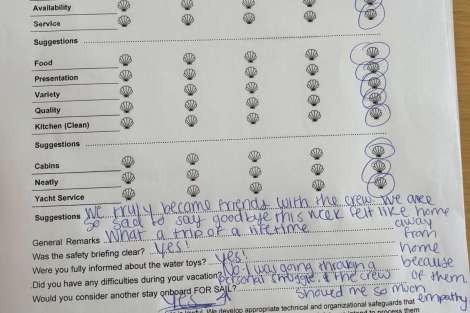 Availability
Service
Suggestions
Food
Presentation
Variety
Quality
Kitchen (Clean)
Suggestions
Cabins
Neatly
Yacht Service
Suggestions We truly became friends with the crew. We are
so sad to say goodbye this week felt like home
away from home because of them
General Remarks What a trip of a lifetime
Was the safety briefing clear? yes!
Were you fully informed about the water toys? yes!
Did you have any difficulties during your vacation? No. I was going through a
personal struggle & the crew
showed me so much empathy
Would you consider another stay onboard FOR SAIL? yes
We develop appropriate technical and organizational safeguards that
to process them